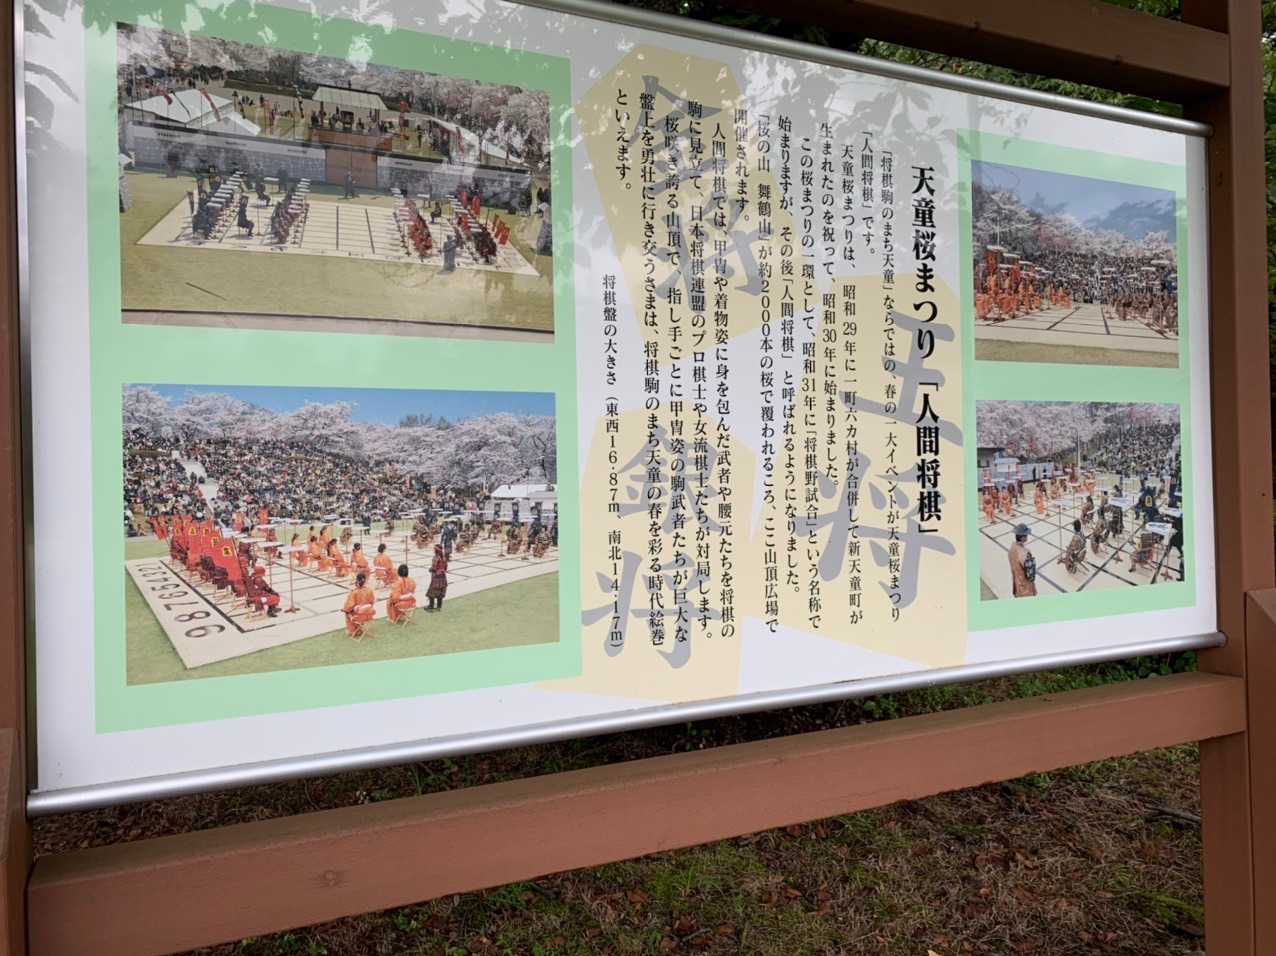 天童桜まつり「人間将棋」
「将棋駒のまち天童」ならではの、春の一大イベントが天童桜まつり
「人間将棋」です。
天童桜まつりは、昭和29年に一町六カ村が合併して新天童町が
生まれたのを祝って、昭和30年に始まりました。
この桜まつりの一環として、昭和31年に「将棋野試合」という名称で
始まりますが、その後「人間将棋」と呼ばれるようになりました。
「桜の山 舞鶴山」が約2000本の桜で覆われるころ、ここ山頂広場で
開催されます。
人間将棋では、甲冑や着物姿に身を包んだ武者や腰元たちを将棋の
駒に見立て、日本将棋連盟のプロ棋士や女流棋士たちが対局します。
桜咲き誇る山頂で、指し手ごとに甲冑姿の駒武者たちが巨大な
盤上を勇壮に行き交うさまは、将棋駒のまち天童の春を彩る時代絵巻
といえます。
将棋盤の大きさ(東西16.87m、南北14.17m)
王将
銀将